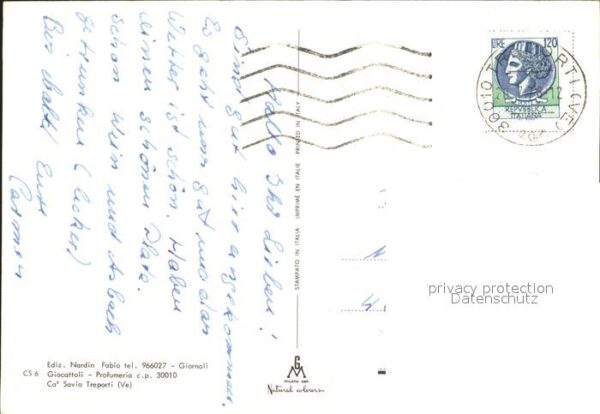 Hallo Ihr Lieben!
Sind gut hier angekommen.
Es geht uns gut und das
Wetter ist schön. Haben
einen schönen Platz.
schon Wein und Asbach
getrunken (lecker)
Bis bald! Eure
Carmen
STAMPATO IN ITALIA IMPRIMÉ EN ITALIE PRINTED IN ITALY
LIRE 120
REPVBBLICA
ITALIANA
30010 TREPORTI (VE)
privacy protection
Datenschutz
Ediz. Nardin Fabio tel. 966027 - Giornali
CS 6 Giocattoli - Profumeria c.p. 30010
Ca' Savio Treporti (Ve)
G
M
Natural colorers